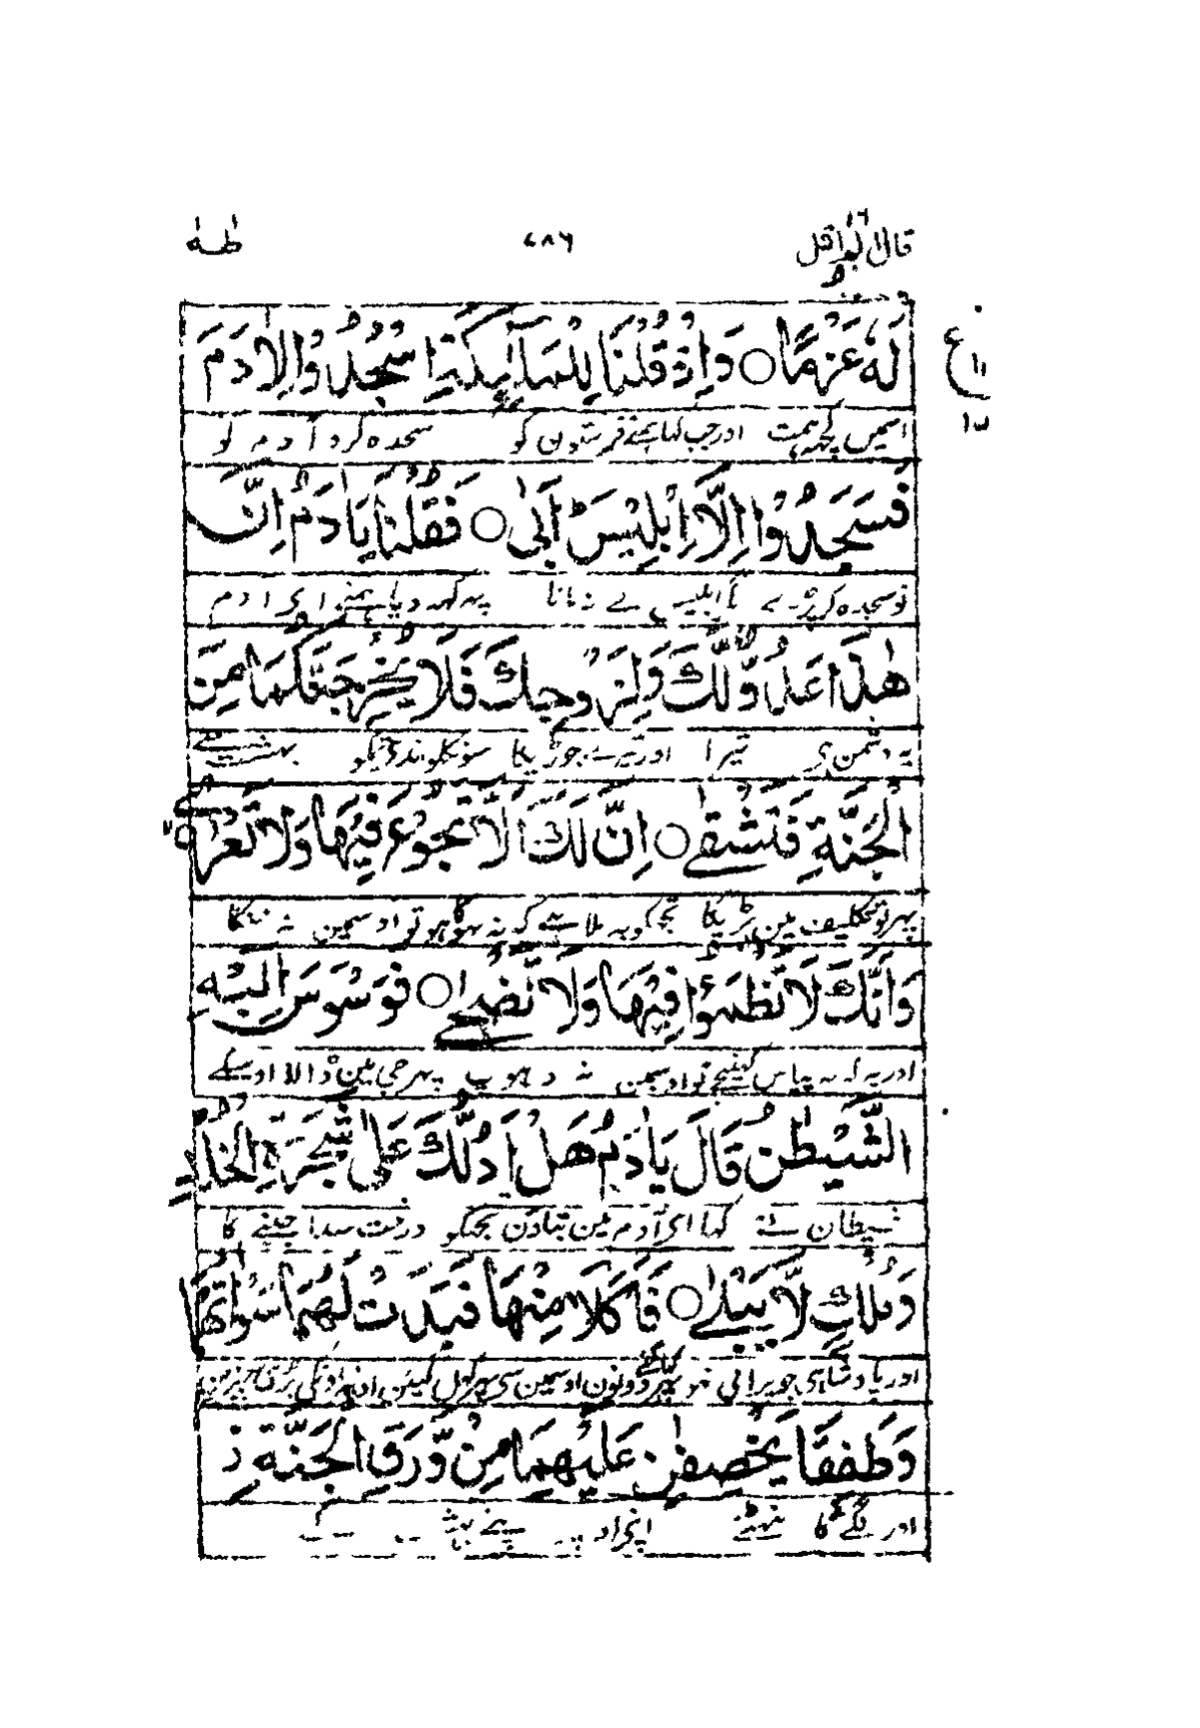 قال الم اقل ١٦ ٤٨٦ طٰهٰ
لَهٗ عَزْمًا ○ وَاِذْ قُلْنَا لِلْمَلٰٓئِكَةِ اسْجُدُوْا لِاٰدَمَ
ع ١١ ١٥
اسمیں کچھ ہمت اور جب کہا ہمنے فرشتون کو سجدہ کرو آدم کو
فَسَجَدُوْا اِلَّا اِبْلِيْسَ ط اَبٰى ○ فَقُلْنَا يٰاٰدَمُ اِنَّ
تو سجدہ کر پڑے ابلیس نے نہ مانا پہر کہہ دیا ہمنے ای آدم
هٰذَا عَدُوٌّ لَّكَ وَلِزَوْجِكَ فَلَا يُخْرِجَنَّكُمَا مِنَ
یہ دشمن ہی تیرا اور تیرے جوڑیکا سو نکلوا ندے تمکو بہشت سے
الْجَنَّةِ فَتَشْقٰى ○ اِنَّ لَكَ اَلَّا تَجُوْعَ فِيْهَا وَلَا تَعْرٰى ○
پہر تو تکلیف مین پڑیگا تجکو یہ ملا ہے کہ نہ بہوکا ہو تو اوسمین نہ ننگا
وَاَنَّكَ لَا تَظْمَؤُا فِيْهَا وَلَا تَضْحٰى ○ فَوَسْوَسَ اِلَيْهِ
اور یہ کہ نہ پیاس کھینچے تو اوسمین نہ دہوپ پہر جی مین ڈالا اوسکے
الشَّيْطٰنُ قَالَ يٰاٰدَمُ هَلْ اَدُلُّكَ عَلٰى شَجَرَةِ الْخُلْدِ
شیطان نے کہا ای آدم مین بتاؤن تجکو درخت سدا جینے کا
وَمُلْكٍ لَّا يَبْلٰى ○ فَاَكَلَا مِنْهَا فَبَدَتْ لَهُمَا سَوْاٰتُهُمَا
اور بادشاہی جو پرانی نہو پہر دونون کہا گئے اوسمین سی پہر کہل گئین
وَطَفِقَا يَخْصِفٰنِ عَلَيْهِمَا مِنْ وَّرَقِ الْجَنَّةِ ز
اور لگے گانٹھنے اپنی اوپر پتے